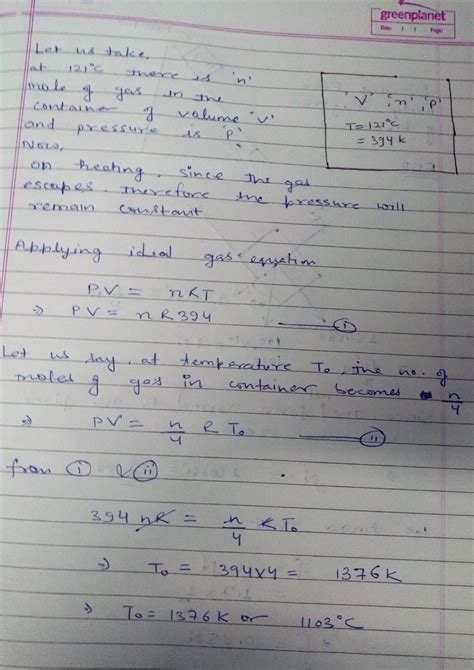 greenplanet
Date: / / Page:
Let us take,
at 121°C there is 'n'
mole of gas in the
container of volume 'V'
and pressure is 'P'.
'V' 'n' 'P'
T = 121°C
= 394 K
Now,
on heating, since the gas
escapes. therefore the pressure will
remain constant
Applying ideal gas equation
P.V = nRT
⇒ PV = nR394 — (i)
Let us say, at temperature T₀, the no. of
moles of gas in container becomes n/4
⇒ PV = n/4 R T₀ — (ii)
from (i) & (ii)
394 nR = n/4 R T₀
⇒ T₀ = 394×4 = 1376 K
⇒ T₀ = 1376 K or 1103°C